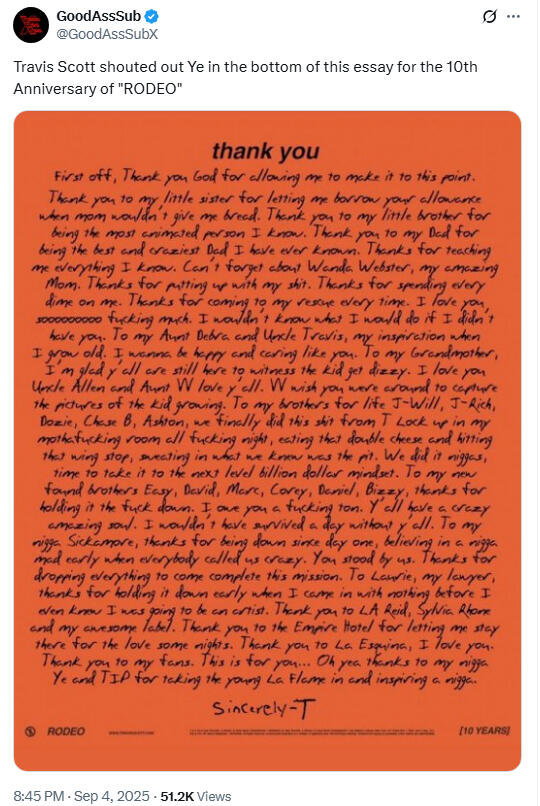 GoodAssSub
@GoodAssSubX
Travis Scott shouted out Ye in the bottom of this essay for the 10th
Anniversary of "RODEO"
thank you
First off, Thank you God for allowing me to make it to this point.
Thank you to my little sister for letting me borrow your allowance
when mom wouldn't give me bread. Thank you to my little brother for
being the most animated person I know. Thank you to my Dad for
being the best and craziest Dad I have ever known. Thanks for teaching
me everything I know. Can't forget about Wanda Webster, my amazing
Mom. Thanks for putting up with my shit. Thanks for spending every
dime on me. Thanks for coming to my rescue every time. I love you
soooooooooo fucking much. I wouldn't know what I would do if I didn't
have you. To my Aunt Debra and Uncle Travis, my inspiration when
I grow old. I wanna be happy and caring like you. To my Grandmother,
I'm glad y'all are still here to witness the kid get dizzy. I love you
Uncle Allen and Aunt W love y'all. W wish you were around to capture
the pictures of the kid growing. To my brothers for life J-Will, J-Rich,
Dozie, Chase B, Ashton, we finally did this shit from T Lock up in my
mothafucking room all fucking night, eating that double cheese and hitting
that wing stop, sweating in what we knew was the pit. We did it niggas,
time to take it to the next level billion dollar mindset. To my new
found brothers Easy, David, Marc, Corey, Daniel, Bizzy, thanks for
holding it the fuck down. I owe you a fucking ton. Y'all have a crazy
amazing soul. I wouldn't have survived a day without y'all. To my
nigga Sickamore, thanks for being down since day one, believing in a nigga
mad early when everybody called us crazy. You stood by us. Thanks for
dropping everything to come complete this mission. To Lawrie, my lawyer,
thanks for holding it down early when I came in with nothing before I
even knew I was going to be an artist. Thank you to LA Reid, Sylvia Rhone
and my awesome label. Thank you to the Empire Hotel for letting me stay
there for the love some nights. Thank you to La Esquina, I love you.
Thank you to my fans. This is for you... Oh yea thanks to my nigga
Ye and TIP for taking the young La Flame in and inspiring a nigga.
Sincerely-T
RODEO
[10 YEARS]
8:45 PM · Sep 4, 2025 · 51.2K Views